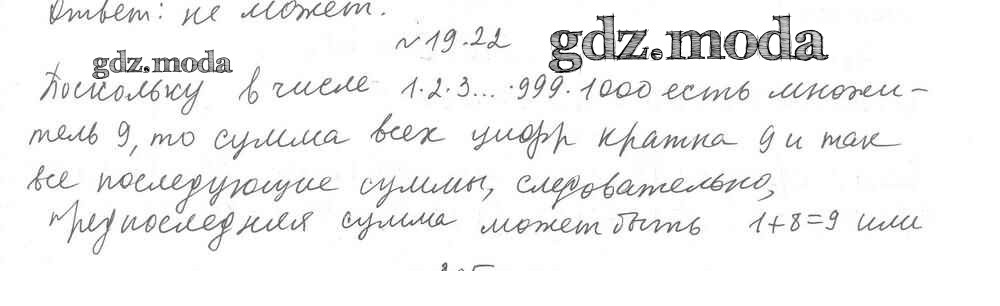 Ответ: не может.
№19.22 gdz.moda
gdz.moda
Поскольку в числе 1·2·3...·999·1000 есть множи-
тель 9, то сумма всех цифр кратна 9 и так
все последующие суммы, следовательно,
предпоследняя сумма может быть 1+8=9 или